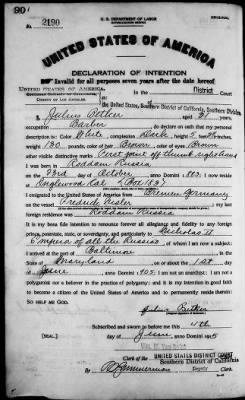 90
ORIGINAL
No. 2190
U. S. DEPARTMENT OF LABOR
NATURALIZATION SERVICE
UNITED STATES OF AMERICA
DECLARATION OF INTENTION
Invalid for all purposes seven years after the date hereof
UNITED STATES OF AMERICA,
SOUTHERN DISTRICT OF CALIFORNIA,
COUNTY OF LOS ANGELES.
ss:
In the District Court
of the United States, Southern District of California, Southern Division
I, Julius , aged 31 years,
occupation Barber, do declare on oath that my personal
description is: Color White, complexion Dark, height 5 feet inches,
weight 130 pounds, color of hair Brown, color of eyes Brown
other visible distinctive marks First joint off thumb right hand
I was born in Roddau Russia
on the 23rd day of October, anno Domini 1883; I now reside
at Inglewood Cal Box
I emigrated to the United States of America from Bremen Germany
on the vessel ; my last
foreign residence was Roddau Russia
It is my bona fide intention to renounce forever all allegiance and fidelity to any foreign
prince, potentate, state, or sovereignty, and particularly to Nicholas II
Emperor of all the Russias, of whom I am now a subject;
I arrived at the port of Baltimore, in the
State of Maryland, on or about the 1st day
of June, anno Domini 1905; I am not an anarchist; I am not a
polygamist nor a believer in the practice of polygamy; and it is my intention in good faith
to become a citizen of the United States of America and to permanently reside therein:
SO HELP ME GOD.
Julius
Subscribed and sworn to before me this 4th
[SEAL.] day of June, anno Domini 1915
Wm. M. Van Dyke
Clerk of the UNITED STATES DISTRICT COURT
Southern District of California
By Zimmerman Deputy Clerk.